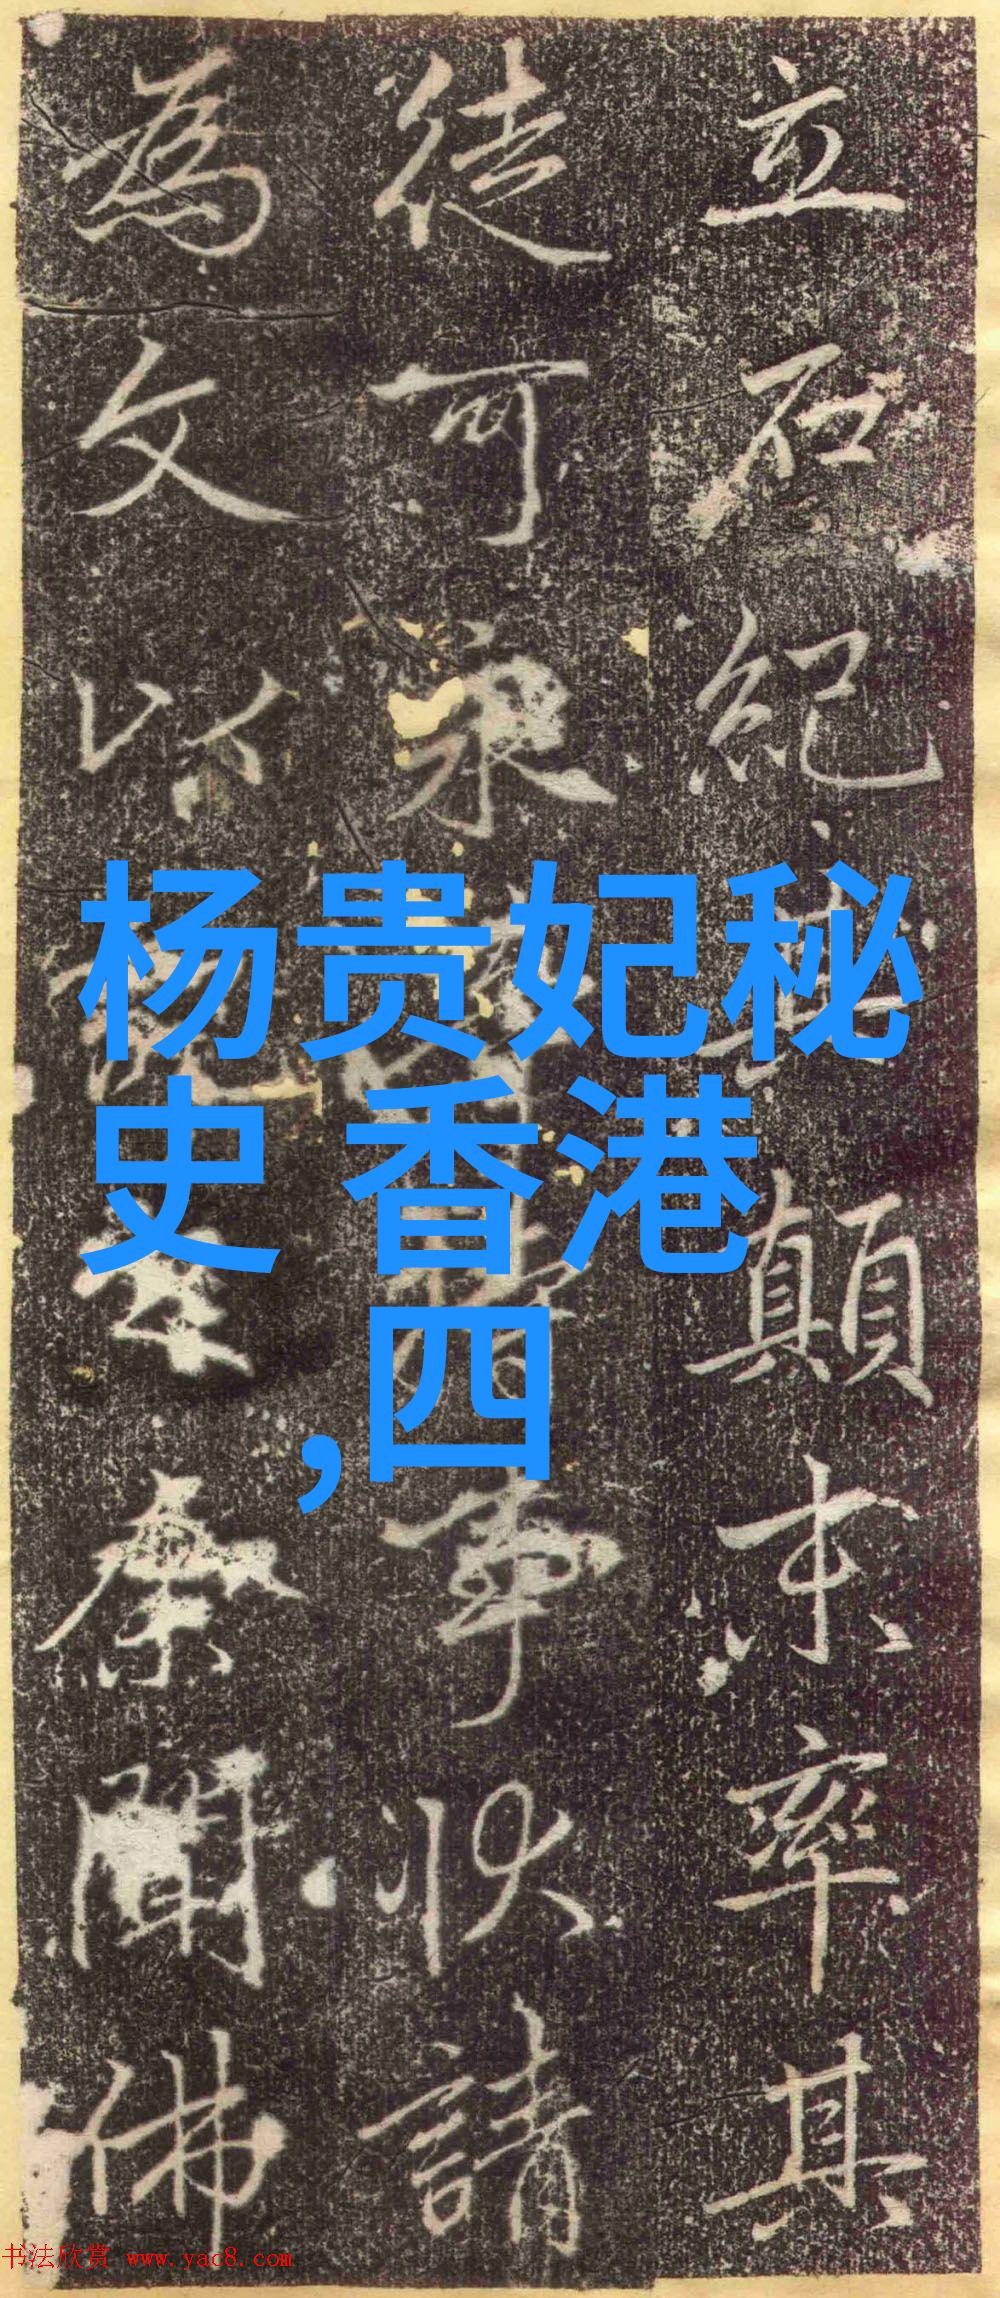 立石紀其顛末率其
徒可事状請
為文以余聞佛
杨贵妃秘
史 香港
,四
书法欣赏 www.yac8.com